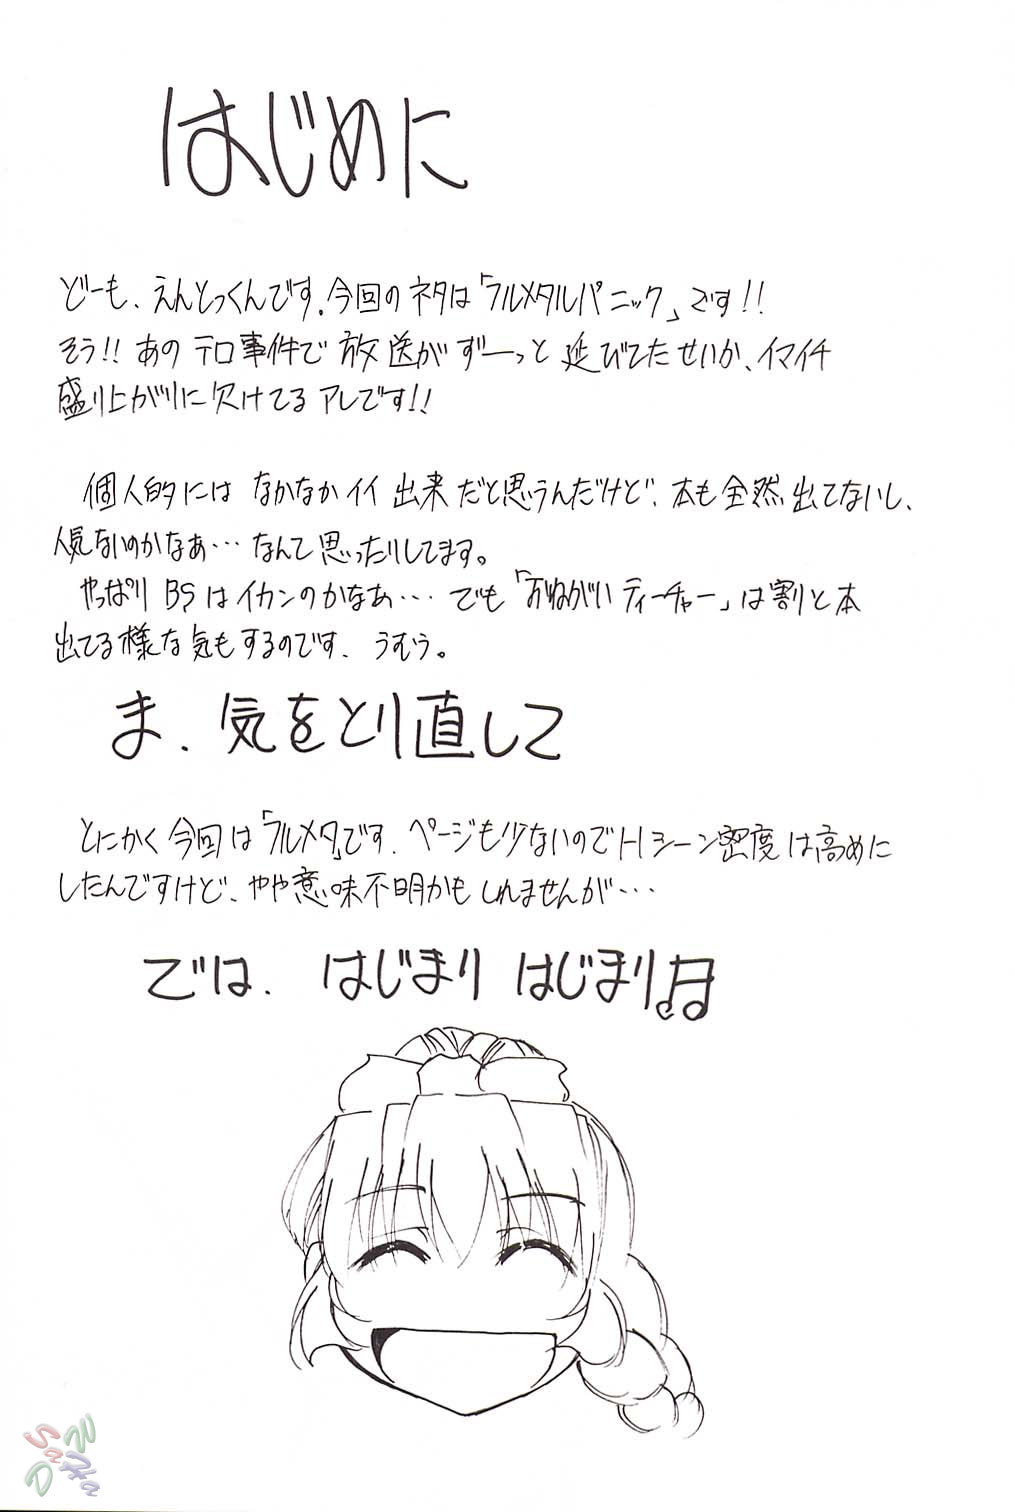 はじめに
どーも、えんとっくんです。今回のネタは「フルメタルパニック」です!!
そう!! あのテロ事件で放送がずーっと延びてたせいか、イマイチ
盛り上がりに欠けてるアレです!!
個人的にはなかなかイイ出来だと思うんだけど、本も全然出てないし、
人気ないのかなぁ…なんて思ったりしてます。
やっぱりBSはイカンのかなぁ…でも「おねがいティーチャー」は割と本
出てる様な気もするのです、うむう。
ま、気をとり直して
とにかく今回は「フルメタ」です、ページも少ないのでHシーン密度は高めに
したんですけど、やや意味不明かもしれませんが…
では、はじまりはじまり♫
SaHa